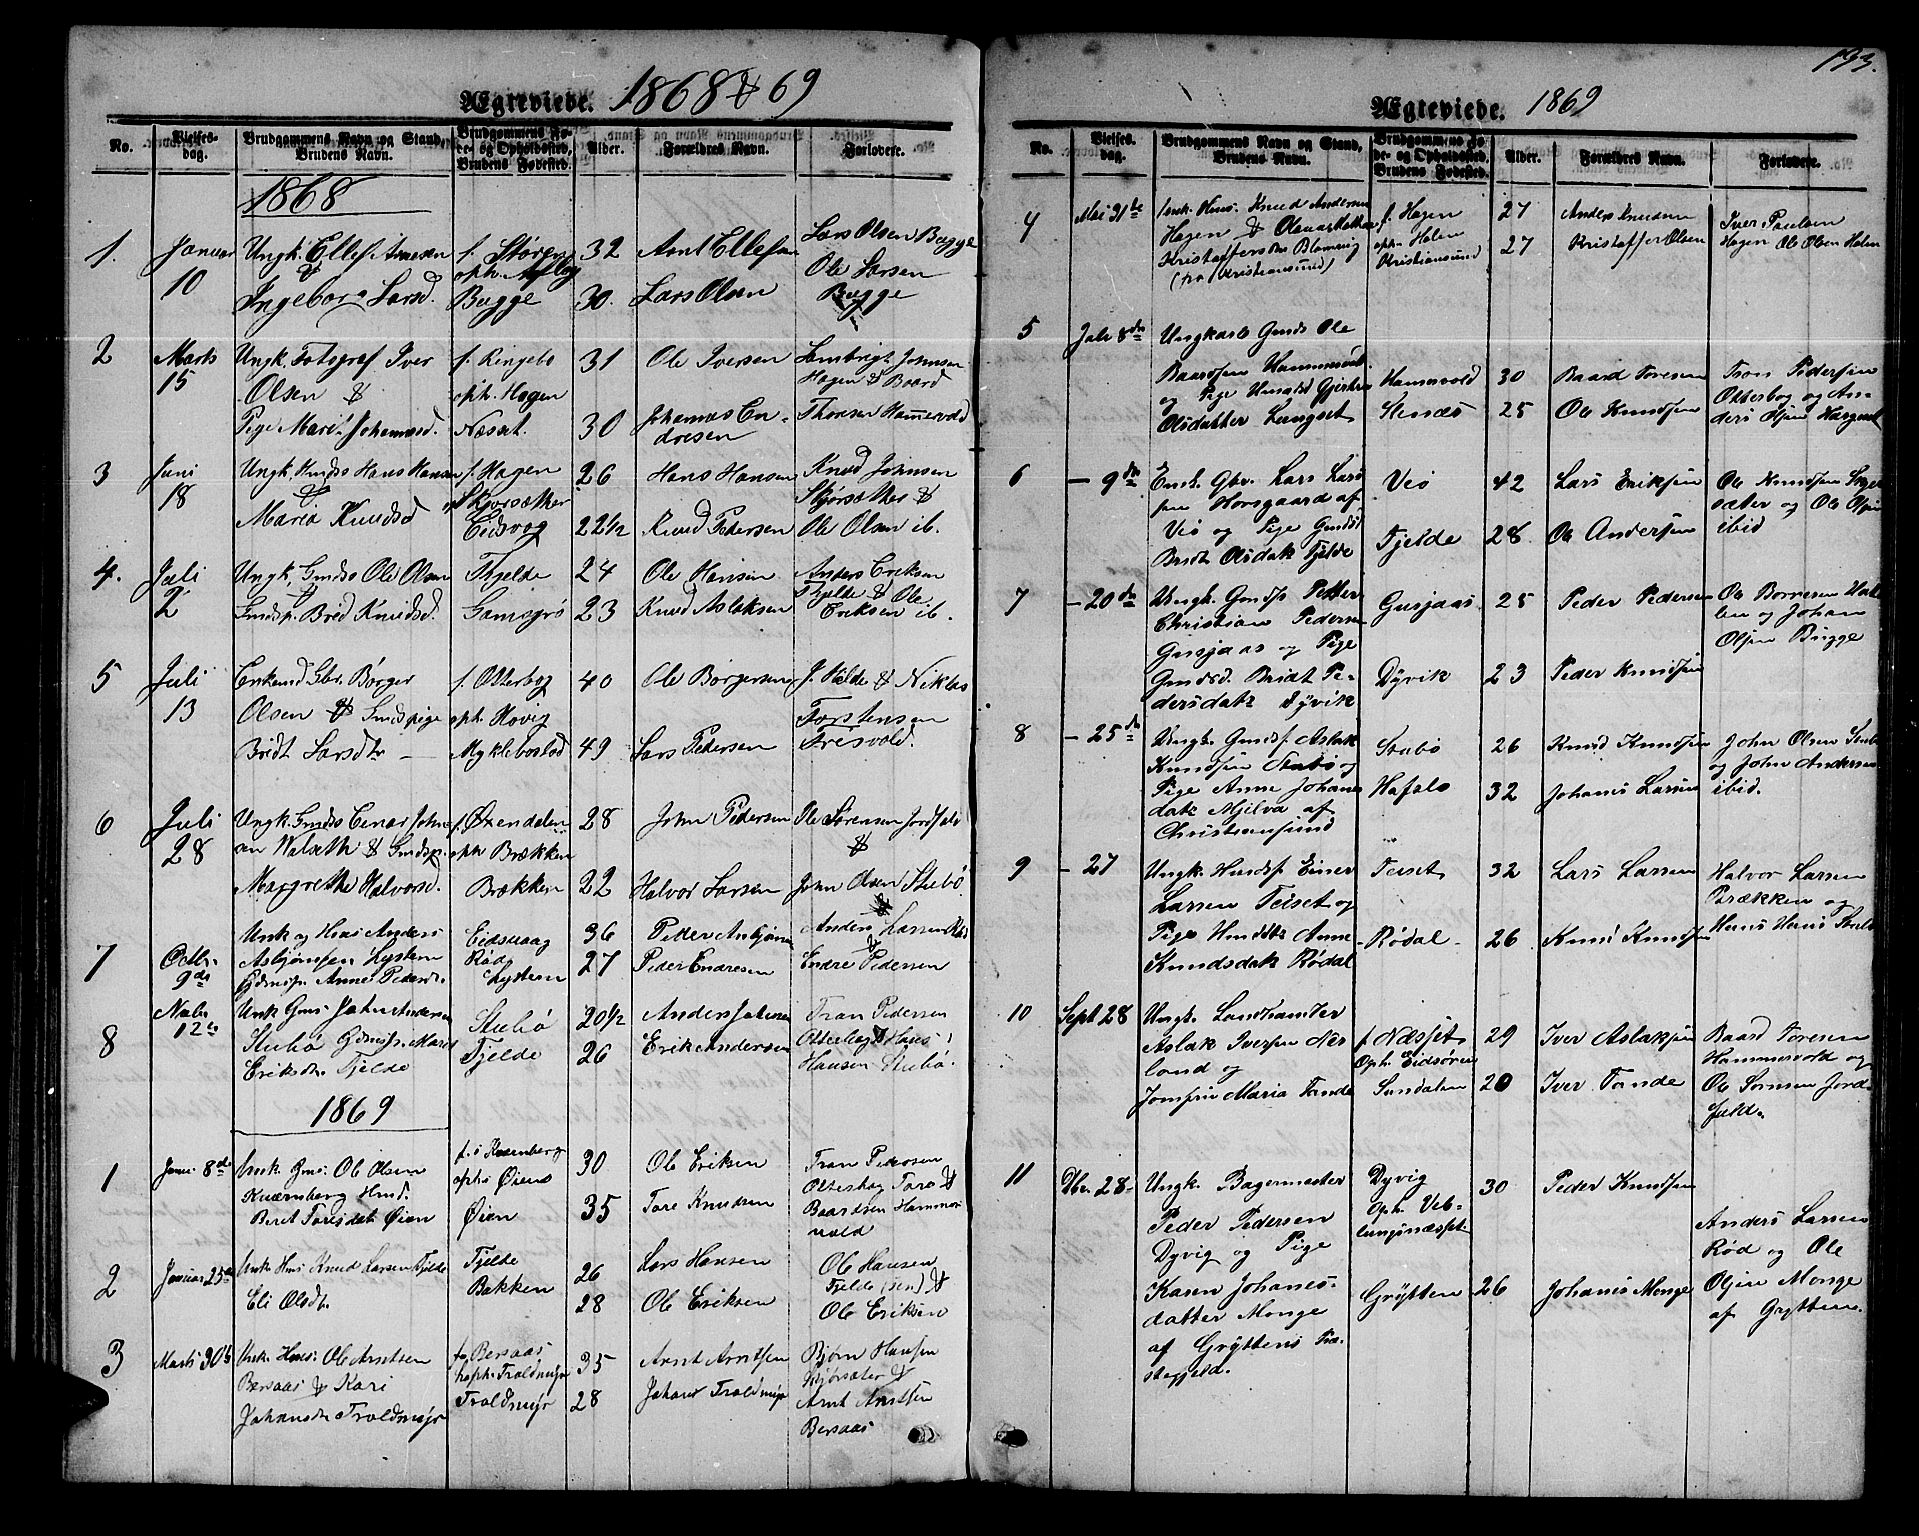 Ægteviede. 1868 & 69
No.
Vielses-
dag.
Brudgommens Navn og Stand,
Brudens Navn.
Brudgommens Fø-
de- og Opholdssted,
Brudens Fødested.
Alder.
Forældres Navn.
Forlovere.
1868
1. Januar 10
Ungk. Ellef Arnesen
&
Ingeborg Larsd.
f. Støren
oph.
Bugge
32
30.
Arnt Ellefsen
Lars Olsen
Lars Olsen Bugge
Ole Larsen
Bugge
2 Marts 15
Ungk. Fotograf Iver
Olsen &
Pige Marit Johannesd.
f. Ringebo
oph. Hagen
Næset.
31
30
Ole Iversen
Johannes En-
dresen
Lambrigt Johnsen
Hagen & Baard
Thoresen Hammervold
3 Juni 18
Ungk. Hmds Hans Hansen
&
Maria Knudsd
f. Hagen
Skjorsæther
Eidsvog
26
22 1/2
Hans Hansen
Knud Petersen
Knud Johnsen
Skjørsæther &
Ole Olsen ib.
4. Juli 2
Ungk. Gmds Ole Olsen
&
Gmdsp. Bred Knudsd.
Fhjelde
24
23
Ole Hansen
Knud Aslaksen
Anders Eriksen
Fhjelde & Ole
Eriksen ib.
5 Juli 13
Enkemd Gbr. Børger
Olsen & Gmdspige
Bridt Larsdtr —
f. Otterbog
oph. Hovig
Myklebostad
40
49
Ole Børgersen
Lars Petersen
J. Hilde & Niklas
Torstensen
Tresvold.
6 Juli 28
Ungk. Gmds Einar Johns
en Walseth & Gmdsp.
Margrethe Halvorsd.
f. Øxendalen
oph Brækken
Brækken
28
22
John Pedersen
Halvor Larsen
Ole Sørensen Jordfald
&
John Olsen Stubø
7 Octbr. 9de
Unk og Hms Anders
Asbjønsen Lystem
Gdmsp. Anne Pedersdt.
Eidsvaag
Rød
Lystem
36
27
Peder Asbjønsen
Peder Endresen
Anders Larsen Rød
&
Endre Pedersen
8 Nvbr 12te
Unk Gms John Andersen
Stubø Gdmsp. Maret
Eriksdt. Tjelde
Stubø
Tjelde
20 1/2
26
Anders Johnsen
Erik Andersen
Tran Pedersen
Otterbog & Hans
Hansen Stubø.
1869
1 Janr 8de
Unk. Gms. Ole Olsen
Kværnberg Hmd.
Beret Toresdat Øien
f. i Kværnberg
oph. Øiens
Øien
30
35
Ole Eriksen
Tore Knudsen
Tran Pedersen
Otterbog Tore &
Baardsen Hammer
vold
2 Januar 25de
Unk Hms Knud Larsen Tjelde
Eli Olsdt.
Tjelde
Bakken
26
28
Lars Hansen
Ole Eriksen
Ole Hansen
Tjelde (sen) &
Ole Eriksen
3 Marts 30te
Unk. Hms: Ole Arntsen
Bersaas & Kari
Johansdt Troldmyr
f. Bersaas
oph. Troldmyr
Troldmyr
35
28
Arnt Arntsen
Johans Troldmyr
Bjørn Hansen
Skjørsæter &
Arnt Arntsen
Bersaas
193.
Ægteviede. 1869
No.
Vielses-
dag.
Brudgommens Navn og Stand,
Brudens Navn.
Brudgommens Fø-
de- og Opholdssted,
Brudens Fødested.
Alder.
Forældres Navn.
Forlovere.
4 Mai 31te
Unk. Hms. Knud Andersen
Hagen &
Kristoffersdtr
(fra Kristiansund)
f. Hagen
oph. Holen
Kristiansund
27
27
Anders Knudsen
Kristoffer Olsen
Iver Paulsen
Hagen Ole Olsen Holen
5 Juli 8de
Ungkarl Gmds Ole
Baardsen Hammervold
og Pige Hmdsd Gjertru
Olsdatter Langset
Hamervold
Stenæs
30
25
Baard Toresen
Ole Knudsen
Tron Pedersen
Otterbog og An-
ders Olsen
6 — 9de
Enk. Gbr. Lars Lars
sen Horsgaard af
Veø og Pige Gmdsd
Bridt Olsdatr Tjelde
Veø
Tjelde
42
28
Lars Eriksen
Ole Andersen
Ole Knudsen
sæter og Ole Olsen
ibid
7 — 20de
Ungk. Gmdss. Petter
Christian Pedersen
Gusjaas og Pige
Gmdsd. Bridt Pe-
dersdatr Dyvik
Gusjaas
Dyvik
25
23
Peder Pedersen
Peder Knudsen
Ole
og Johan
Olsen Bugge
8 — 25de
Ungk. Gmdss. Aslak
Knudsen Stubø og
Pige Anne Johanes
datr Mjelva af
Christiansund
Stubø
Hafals
26
32
Knud Knudsen
Johanes Larsen
John Olsen Stubø
og John Andersen
ibid.
9 — 27
Ungk. Hmdss. Einer
Larsen Teiset og
Pige Hmdsdtr Anne
Knudsdatr Rødal
Teiset
Rødal
32
26
Lars Larsen
Knud Knudsen
Halvor Larsen
Brækken og
Hans Hans Stubø
10 Sept 28
Ungk. Landhandler
Aslak Iversen Ner
land og
Jomfru Maria Tande
f. Næsset
Oph. Eidsøren
Sundalen
29
20
Iver Aslaksen
Iver Tande
Baard Toresen
Hammervold og
Ole Sørensen Jord
fald.
11 Dbr. 28
Ungk. Bagermester
Peder Pedersen
Dyvig og Pige
Karen Johanes-
datter Monge
af Gryttens Præ-
stegjeld.
Dyvig
Oph. Veb-
lungsnæsset
Grytten
30
26
Peder Knudsen
Johanes Monge
Anders Larsen
Rød og Ole
Olsen Monge
af Grytten.